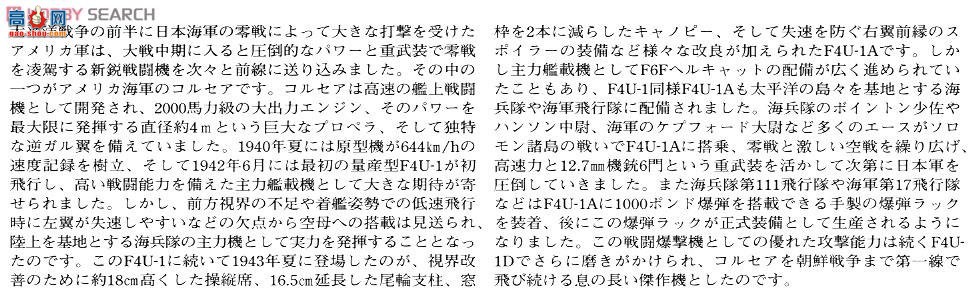 HOBBY SEARCH
高手网
gao-shou.com
太平洋戦争の前半に日本海軍の零戦によって大きな打撃を受けた
アメリカ軍は、大戦中期に入ると圧倒的なパワーと重武装で零戦
を凌駕する新鋭戦闘機を次々と前線に送り込みました。その中の
一つがアメリカ海軍のコルセアです。コルセアは高速の艦上戦闘
機として開発され、2000馬力級の大出力エンジン、そのパワーを
最大限に発揮する直径約4mという巨大なプロペラ、そして独特
な逆ガル翼を備えていました。1940年夏には原型機が644km/hの
速度記録を樹立、そして1942年6月には最初の量産型F4U-1が初
飛行し、高い戦闘能力を備えた主力艦載機として大きな期待が寄
せられました。しかし、前方視界の不足や着艦姿勢での低速飛行
時に左翼が失速しやすいなどの欠点から空母への搭載は見送られ、
陸上を基地とする海兵隊の主力機として実力を発揮することとなっ
たのです。このF4U-1に続いて1943年夏に登場したのが、視界改
善のために約18cm高くした操縦席、16.5cm延長した尾輪支柱、窓
枠を2本に減らしたキャノピー、そして失速を防ぐ右翼前縁のス
ポイラーの装備など様々な改良が加えられたF4U-1Aです。しか
し主力艦載機としてF6Fヘルキャットの配備が広く進められてい
たこともあり、F4U-1同様F4U-1Aも太平洋の島々を基地とする海
兵隊や海軍飛行隊に配備されました。海兵隊のボイントン少佐や
ハンソン中尉、海軍のケプフォード大尉など多くのエースがソロ
モン諸島の戦いでF4U-1Aに搭乗、零戦と激しい空戦を繰り広げ、
高速力と12.7mm機銃6門という重武装を活かして次第に日本軍を
圧倒していきました。また海兵隊第111飛行隊や海軍第17飛行隊
などはF4U-1Aに1000ポンド爆弾を搭載できる手製の爆弾ラック
を装着、後にこの爆弾ラックが正式装備として生産されるように
なりました。この戦闘爆撃機としての優れた攻撃能力は続くF4U-
1Dでさらに磨きがかけられ、コルセアを朝鮮戦争まで第一線で
飛び続ける息の長い傑作機としたのです。